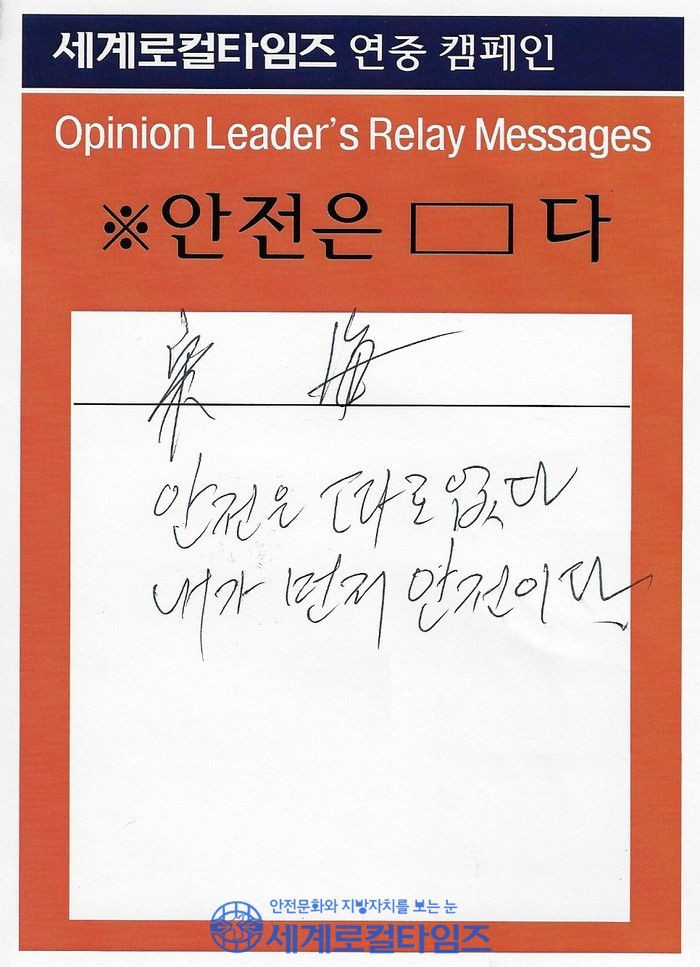 세계로컬타임즈 연중 캠페인
Opinion Leader's Relay Messages
※안전은 □ 다
宋 海
안전은 따로 없다
내가 먼저 안전이다.
안전문화와 지방자치를 보는 눈
세계로컬타임즈